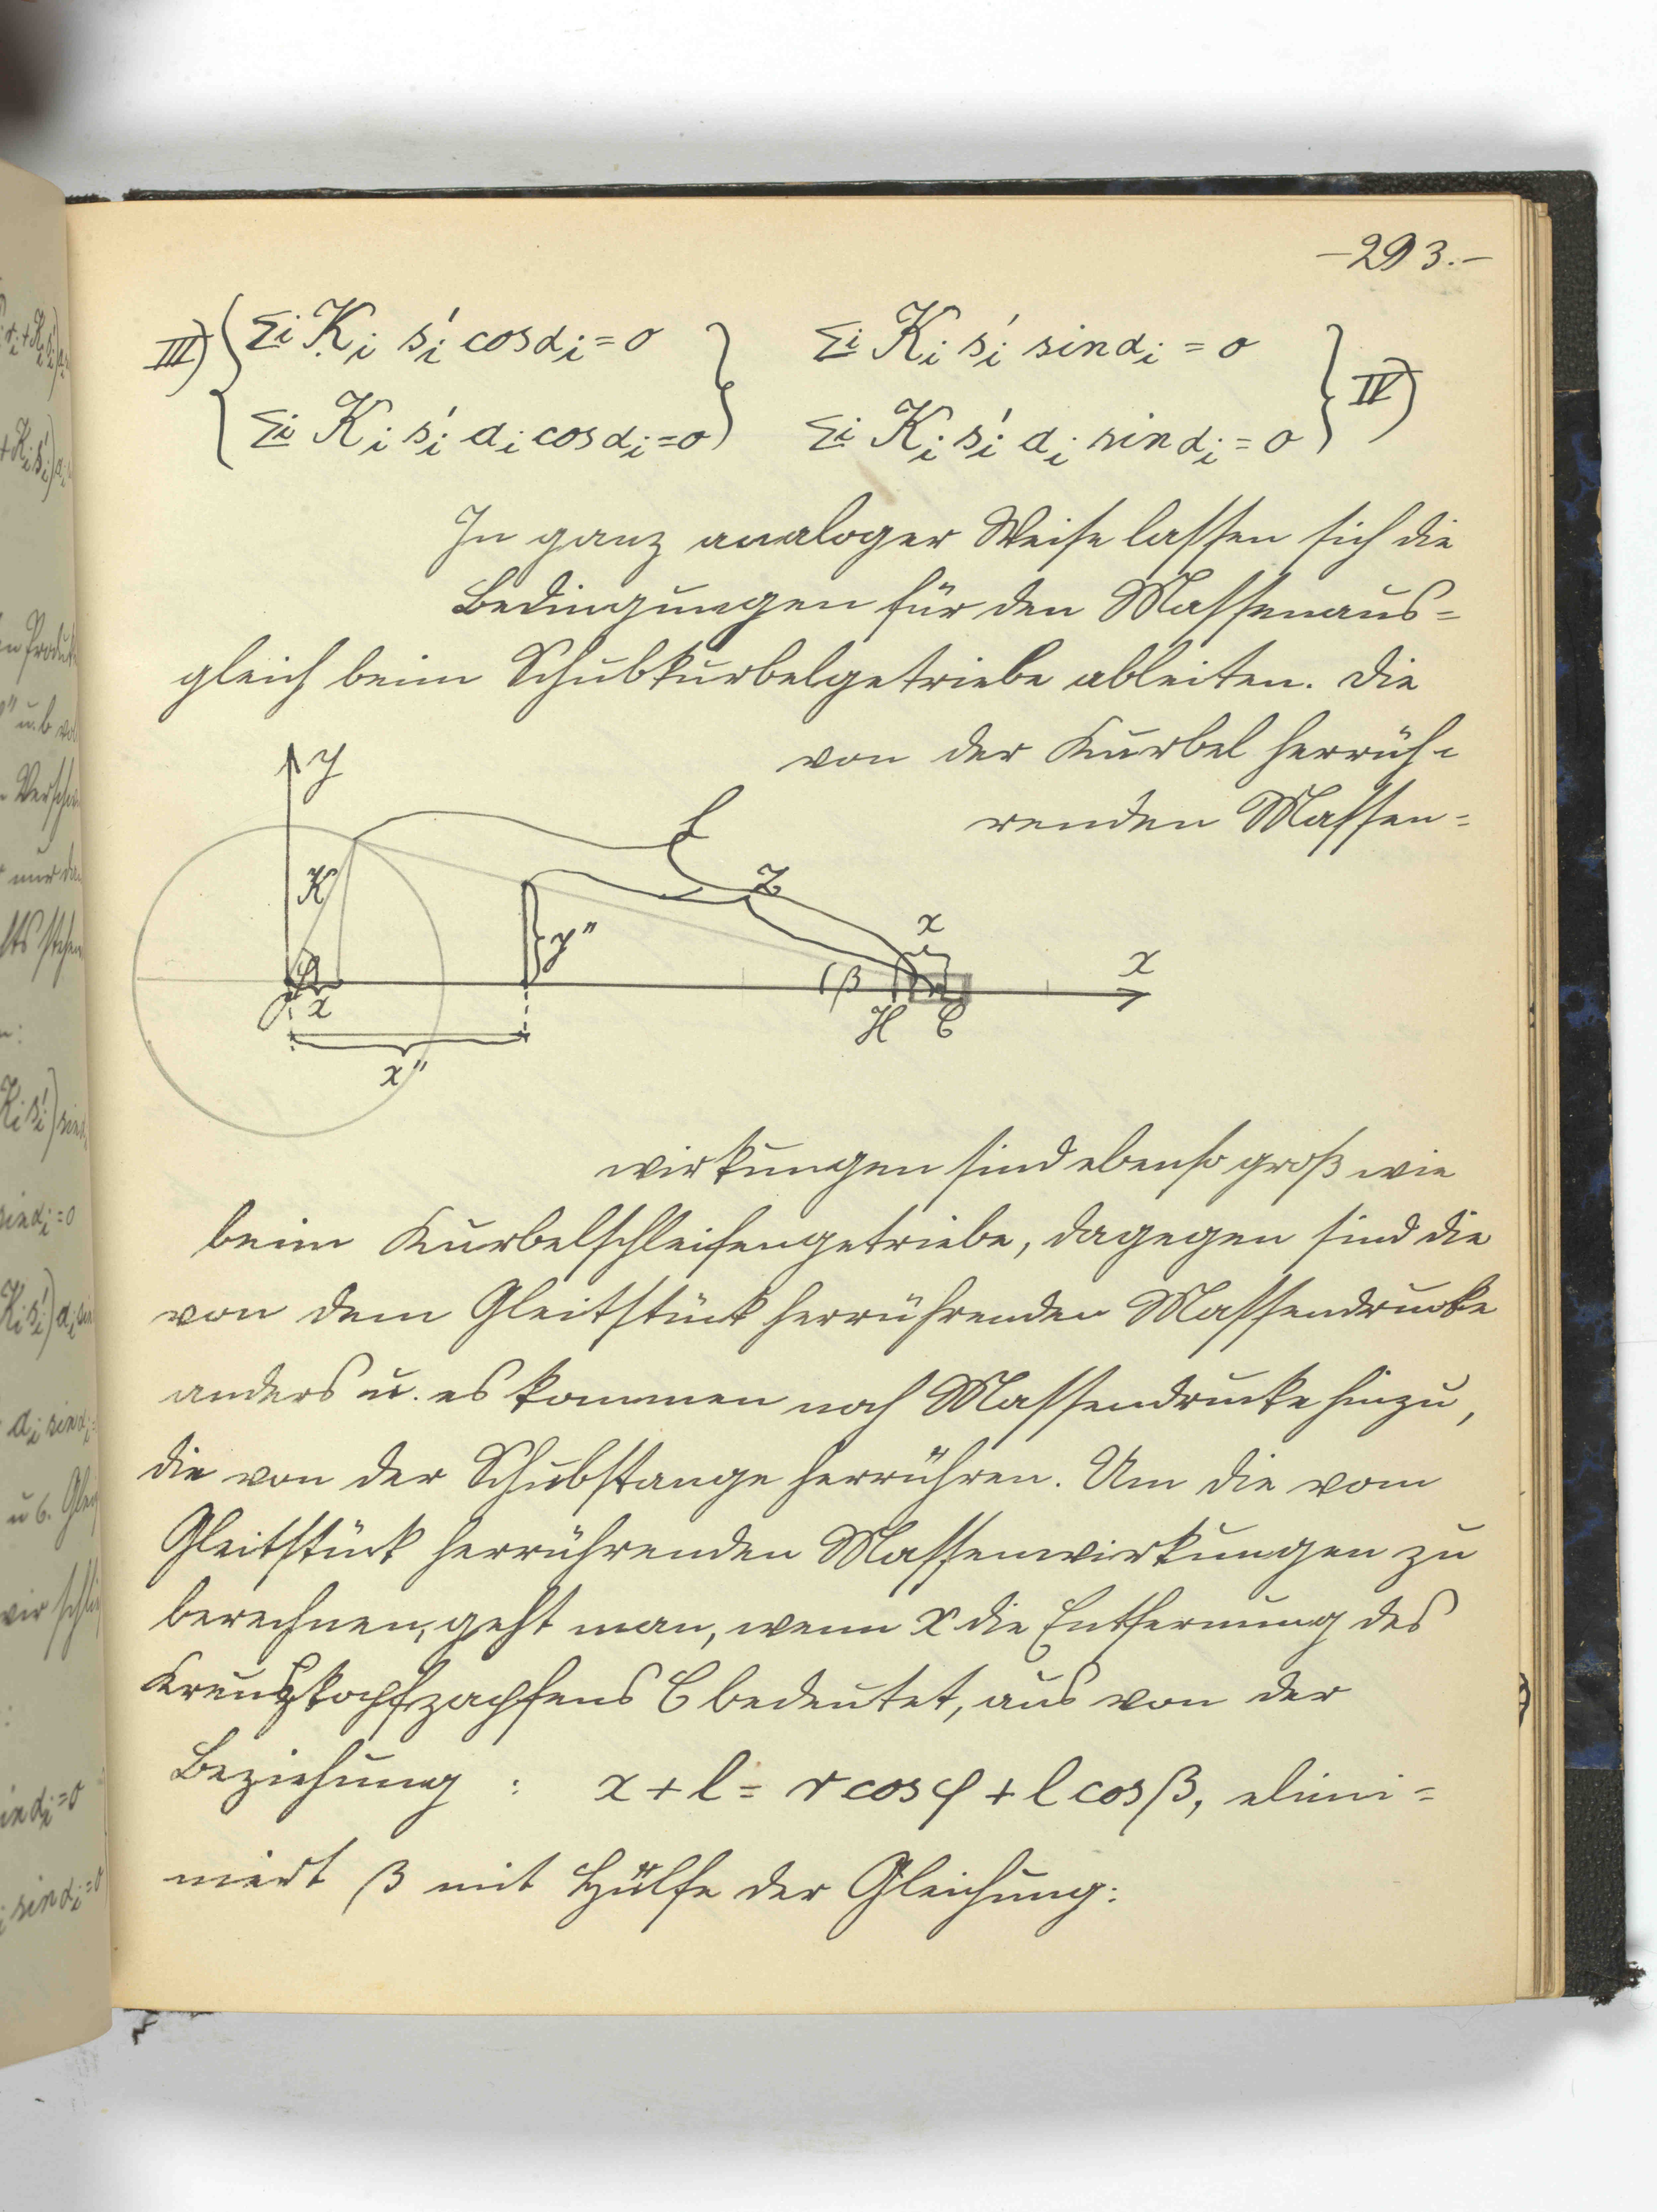 -293.-
III) { Σi Ki s'i cosαi = 0 } Σi Ki s'i sinαi = 0 } IV)
{ Σi Ki s'i ai cosαi = 0 } Σi Ki s'i ai sinαi = 0 }
In ganz analoger Weise lassen sich die
Bedingungen für den Massenaus=
gleich beim Schubkurbelgetriebe ableiten. Die
von der Kurbel herrüh=
renden Massen=
y
K
l
z
y"
x
β
x
φ
O
x
H
C
x"
wirkungen sind ebenso groß wie
beim Kurbelschleifengetriebe, dagegen sind die
von dem Gleitstück herrührenden Massendrucke
anders u. es kommen noch Massendrucke hinzu,
die von der Schubstange herrühren. Um die vom
Gleitstück herrührenden Massenwirkungen zu
berechnen, geht man, wenn x die Entfernung des
Kreuzkopfzapfens C bedeutet, aus von der
Beziehung : x + l = r cos φ + l cos β, elimi=
niert β mit Hülfe der Gleichung: